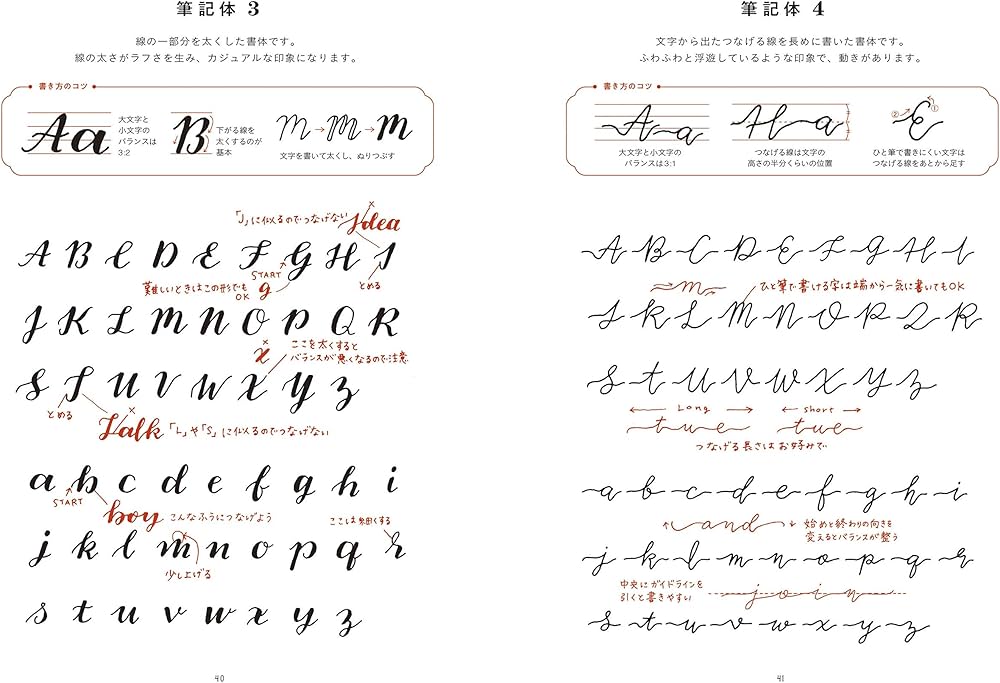 筆記体 3
線の一部分を太くした書体です。
線の太さがラフさを生み、カジュアルな印象になります。
書き方のコツ
Aa
大文字と
小文字の
バランスは
3:2
B
下がる線を
太くするのが
基本
m→m→m
文字を書いて太くし、ぬりつぶす
「J」に似るのでつなげない
×
Idea
A B C D E F G H I
START
難しいときはこの形でも
OK
g
とめる
J K L M N O P Q R
×
x
ここを太くすると
バランスが悪くなるので注意
S T U V W X Y Z
とめる
×
Talk
「L」や「S」に似るのでつなげない
a b c d e f g h i
START
boy
こんなふうにつなげよう
ここは細くする
j k l m n o p q r
×
少し上げる
s t u v w x y z
40
筆記体 4
文字から出たつなげる線を長めに書いた書体です。
ふわふわと浮遊しているような印象で、動きがあります。
書き方のコツ
A a
大文字と小文字の
バランスは3:1
A a
つなげる線は文字の
高さの半分くらいの位置
② E ①
ひと筆で書きにくい文字は
つなげる線をあとから足す
A B C D E F G H I
m
ひと筆で書ける字は端から一気に書いてもOK
J K L M N O P Q R
S T U V W X Y Z
Long
short
tue
tue
つなげる長さはお好みで
a b c d e f g h i
and
始めと終わりの向きを
変えるとバランスが整う
j k l m n o p q r
中央にガイドラインを
引くと書きやすい
join
s t u v w x y z
41